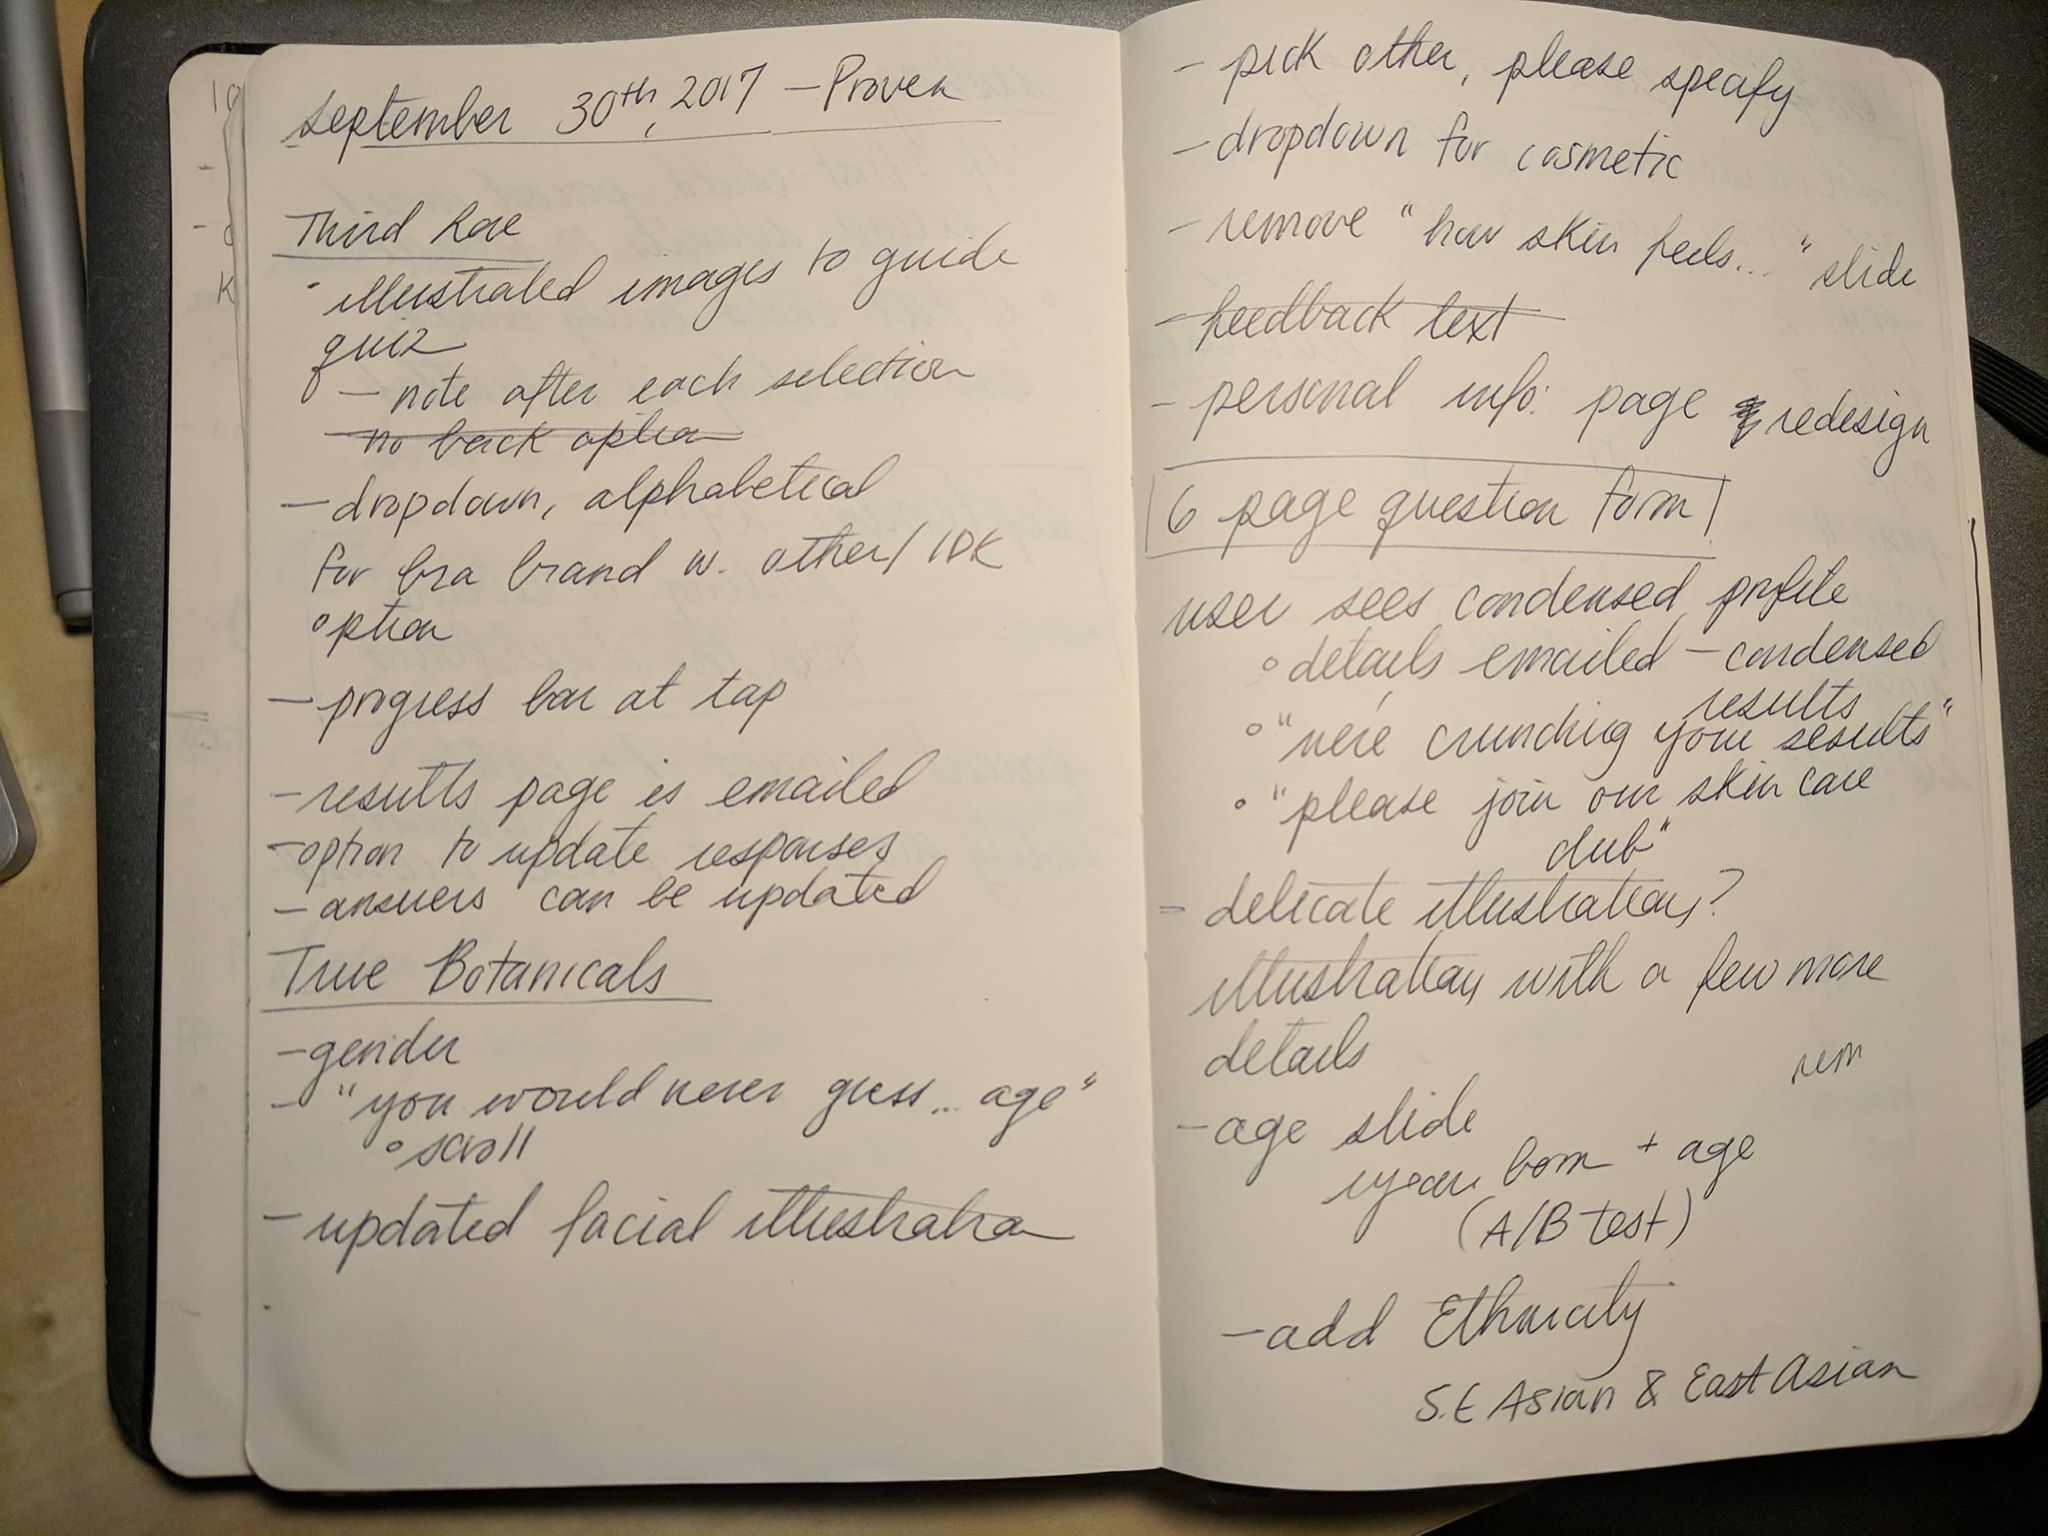 September 30th, 2017 - Proven
Third Love
· illustrated images to guide
quiz
- note after each selection
- no back option
- dropdown, alphabetical
for bra brand w. other / IDK
option
- progress bar at top
- results page is emailed
- option to update responses
- answers can be updated
True Botanicals
- gender
- "you would never guess... age"
° scroll
- updated facial illustration
- pick other, please specify
- dropdown for cosmetic
- remove "how skin feels..." slide
- feedback text
- personal info: page redesign
6 page question form
user sees condensed profile
° details emailed - condensed
results
° "we're crunching your results"
° "please join our skin care
club"
- delicate illustrations?
illustrations with a few more
details
rem
- age slide
year born + age
(A/B test)
- add Ethnicity
S.E Asian & East Asian
10
-
-
K